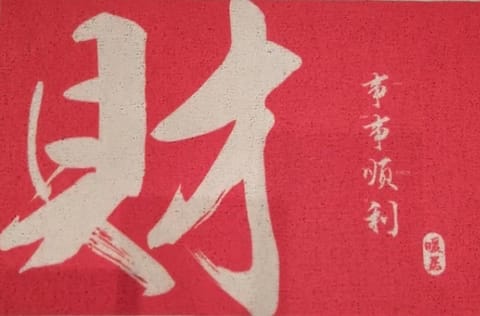 財
事事順利
暖居